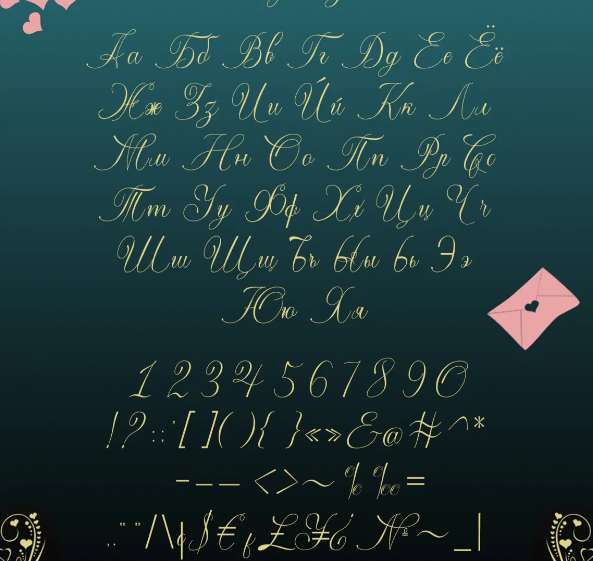 Аа Бб Вв Гг Дд Ее Ёё
Жж Зз Ии Йй Кк Лл
Мм Нн Оо Пп Рр Сс
Тт Уу Фф Хх Цц Чч
Шш Щщ Ъъ Ыы Ьь Ээ
Юю Яя
1 2 3 4 5 6 7 8 9 0
! ? : ; ' [ ] ( ) { } « » & @ # ^ *
- – — < > ~ % ‰ =
/ \ $ € £ ¥ № ~ _ |